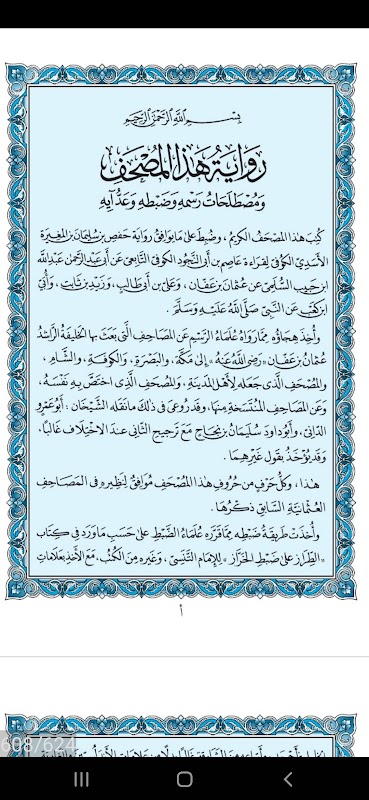 بِسْمِ ٱللَّهِ ٱلرَّحْمَٰنِ ٱلرَّحِيمِ
رِوَايَةُ هَذَا المُصْحَفِ
وَمُصْطَلَحَاتُ رَسْمِهِ وَضَبْطِهِ وَعَدِّ آيِهِ
كُتِبَ هذا المصْحَفُ الكريمُ، وضُبِطَ على مَا يوافِقُ رِوَايةَ حَفْصِ بنِ سُلَيمانَ بنِ المُغِيرةِ
الأسَدِيِّ الكُوفيِّ لِقِرَاءةِ عَاصِمِ بنِ أبي النَّجُودِ الكُوفيِّ التَّابِعيِّ عَن أبي عَبْدِ الرَّحمٰنِ عَبْدِ اللهِ
ابنِ حَبِيبٍ السُّلَمِيِّ عَن عُثْمَانَ بنِ عَفَّانَ، وَعَليِّ بنِ أبي طَالِبٍ، وَزَيْدِ بنِ ثَابِتٍ، وَأُبَيِّ
ابنِ كَعْبٍ عَن النَّبِيِّ صَلَّى اللهُ عَلَيْهِ وَسَلَّمَ.
وأُخِذَ هِجَاؤُه مِمَّا رَوَاهُ عُلَمَاءُ الرَّسْمِ عَن المصَاحِفِ الَّتي بَعَثَ بِهَا الخَلِيفَةُ الرَّاشِدُ
عُثْمَانُ بنُ عَفَّانَ «رضيَ اللهُ عَنهُ» إلى مَكَّةَ، وَالبَصْرَةِ، وَالكُوفَةِ، وَالشَّامِ،
وَالمُصْحَفِ الَّذي جَعَلَهُ لِأَهْلِ المَدِينَةِ، وَالمُصْحَفِ الَّذِي اخْتَصَّ بِهِ نَفْسَهُ،
وَعَن المصَاحِفِ المُنْتَسَخَةِ مِنهَا، وَقَد رُوعِيَ في ذلكَ مَا نَقَلَهُ الشَّيْخَانِ: أَبُو عَمْرٍو
الدَّانِيُّ، وَأَبُو دَاودَ سُلَيْمَانُ بنُ نَجَاحٍ مَعَ تَرْجِيحِ الثَّاني عِندَ الاخْتِلَافِ غَالِبًا،
وَقَد يُؤْخَذُ بِقَولِ غَيْرِهِمَا.
هٰذا، وكُلُّ حَرْفٍ مِن حُرُوفِ هٰذَا المُصْحَفِ مُوَافِقٌ لِنَظِيرِهِ في المصَاحِفِ
العُثْمَانِيَّةِ السَّابِقِ ذِكْرُهَا.
وأُخِذَتْ طَرِيقَةُ ضَبْطِهِ مِمَّا قَرَّرَهُ عُلَمَاءُ الضَّبْطِ عَلَى حَسَبِ مَا وَرَدَ في كِتَابِ
«الطِّرَازِ عَلَى ضَبْطِ الخَرَّازِ» لِلإِمَامِ التَّنَسِيِّ، وَغَيْرِهِ مِنَ الكُتُبِ، مَعَ الأَخْذِ بِعَلَامَاتِ
أ
608/624